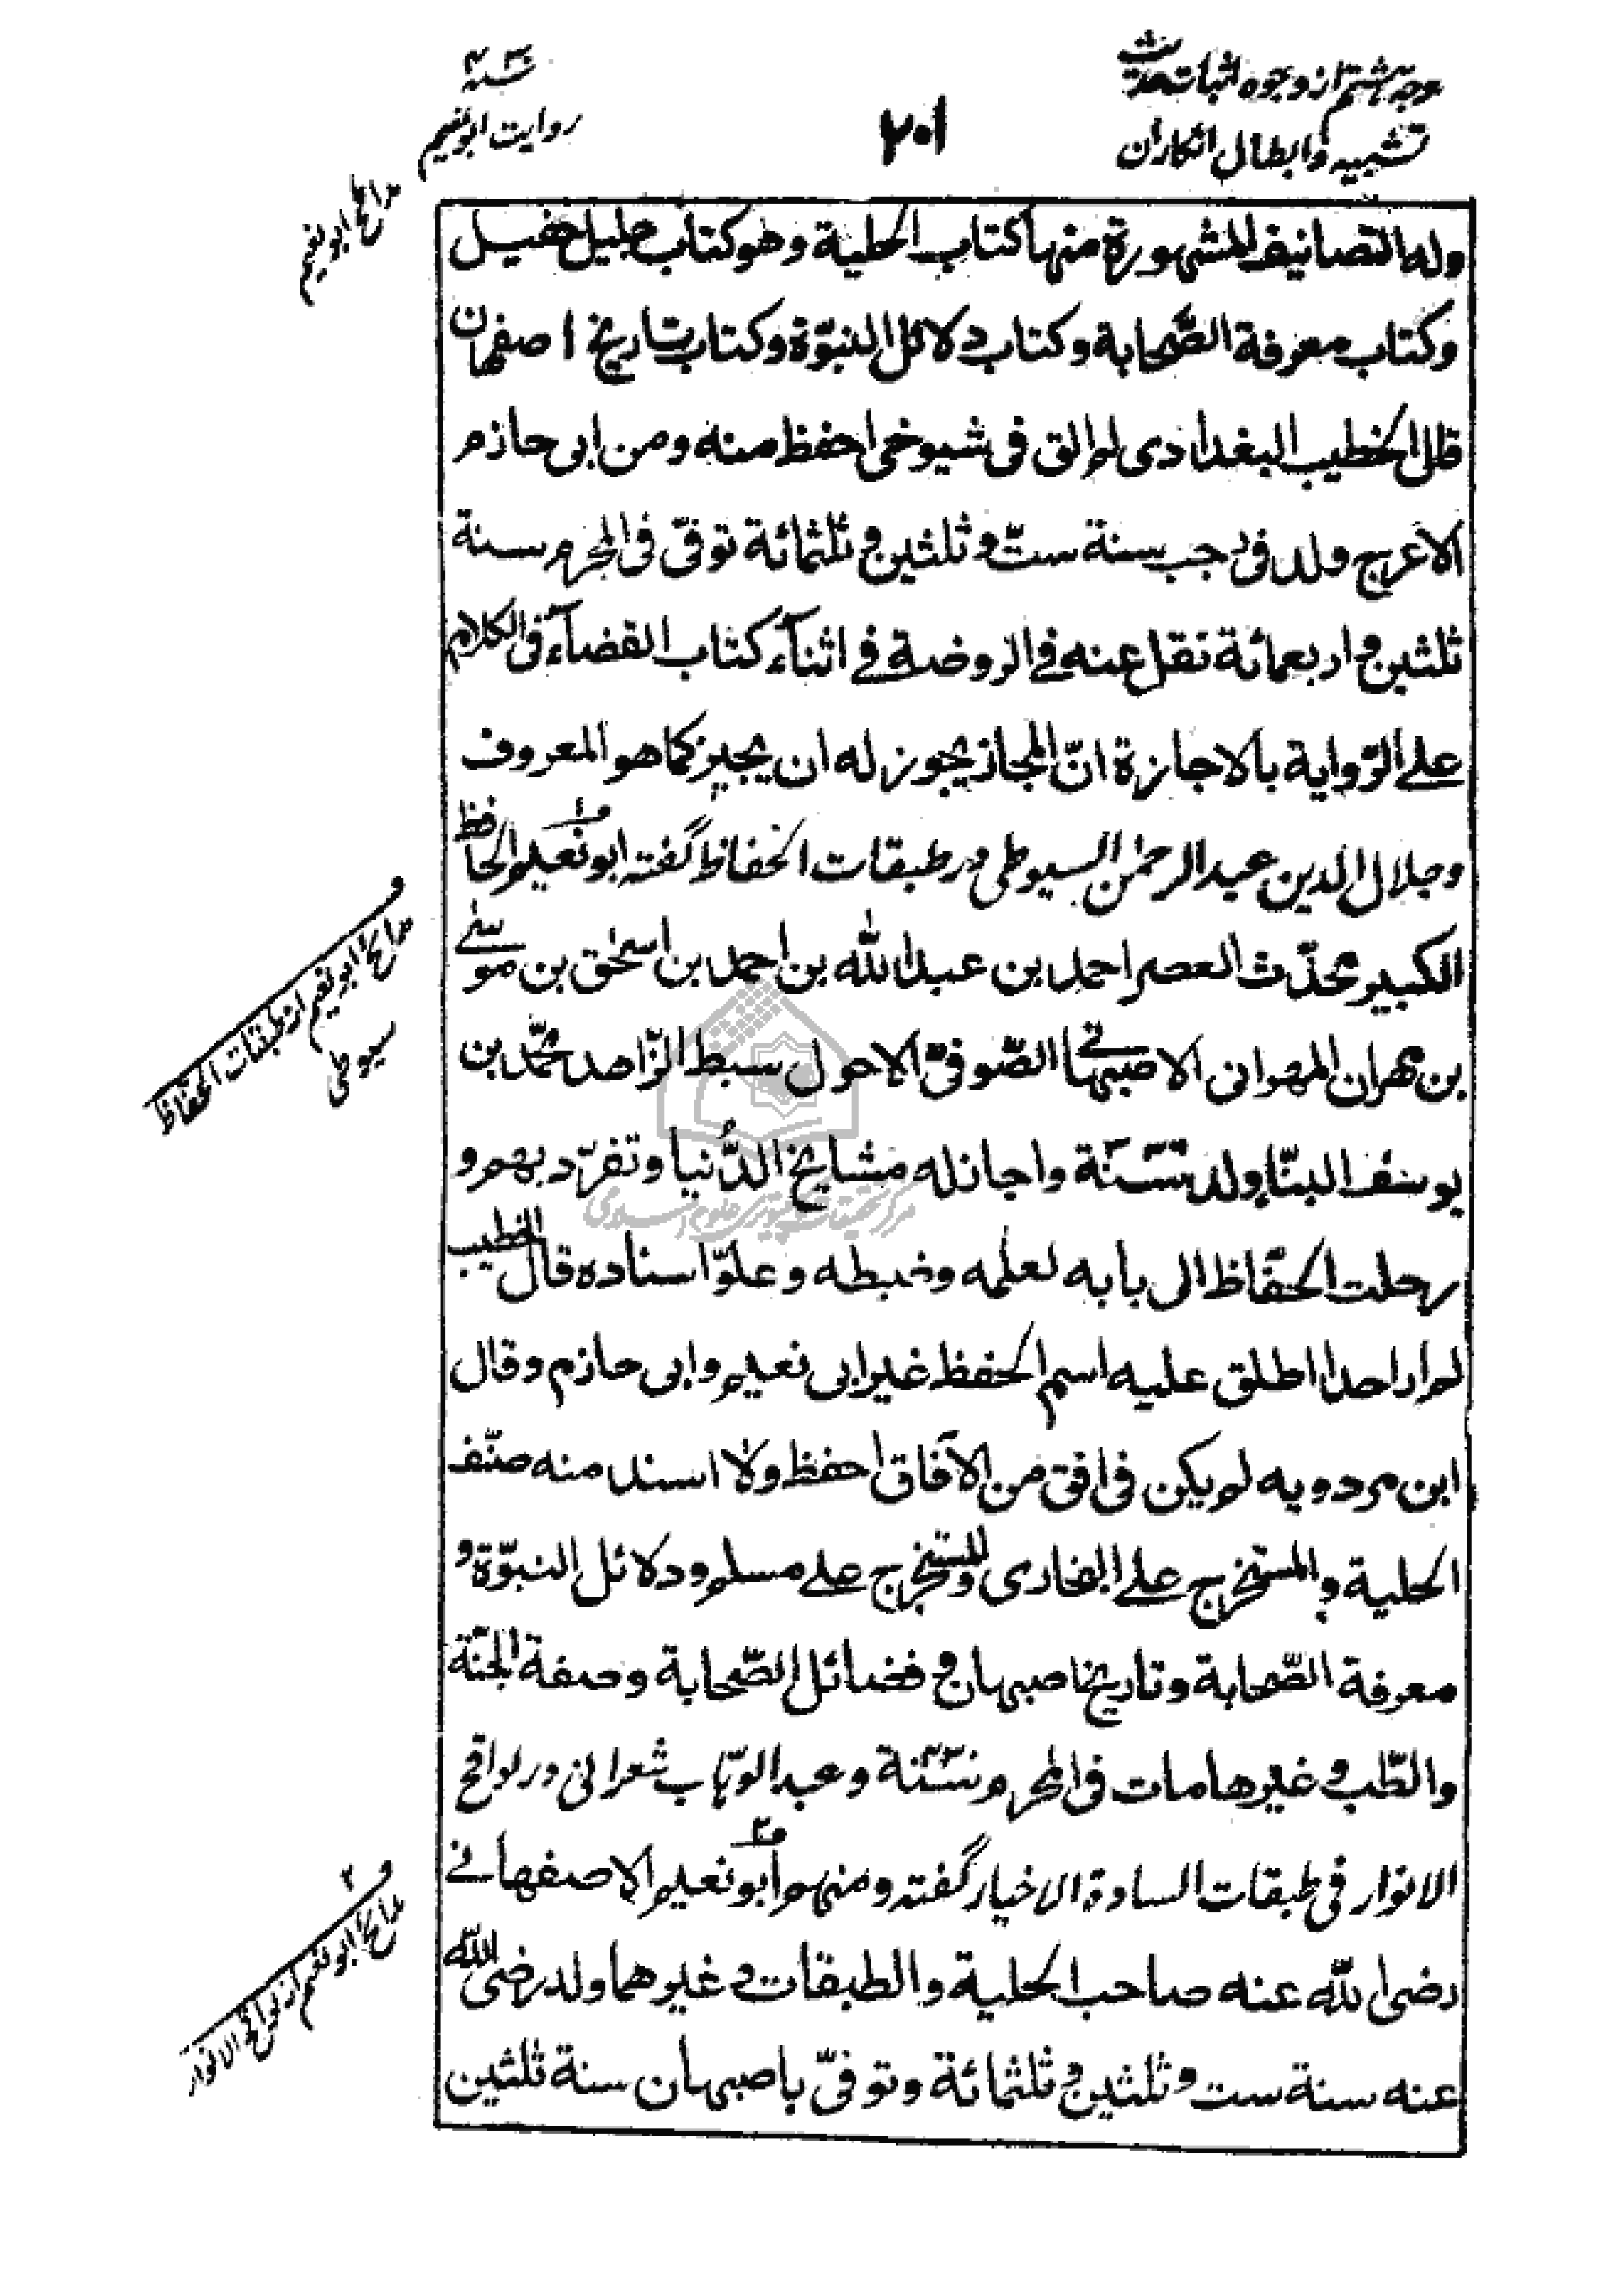 وجه هشتم از وجوه اثبات حدیث
تشبیه و ابطال انکار ان
۲۰۱
سنه ۴۳۰
روایت ابو نعیم
مدائح ابو نعیم
وله التصانیف المشهورة منها کتاب الحلیة وهو کتاب جلیل حفیل
وکتاب معرفة الصّحابة وکتاب دلائل النبوّة وکتاب تاریخ اصفهان
قال الخطیب البغدادی لم الق فی شیوخی احفظ منه ومن ابی حازم
الاعرج ولد فی رجب سنة ستّ وثلثین و ثلثمائة توفّی فی المحرم سنة
ثلثین و اربعمائة نقل عنه فی الروضة فی اثناء کتاب القضاء فی الکلام
علی الرّوایة بالاجازة انّ المجاز یجوز له ان یجیز کما هو المعروف
وجلال الدین عبد الرحمن السیوطی در طبقات الحفاظ گفته ابو نعیم الحافظ
الکبیر محدّث العصر احمد بن عبد الله بن احمد بن اسحق بن موسی
بن مهران المهرانی الاصبهانی الصّوفیّ الاحول سبط الزّاهد محمّد بن
یوسف البنّا ولد سنة ۳۳۶ واجاز له مشایخ الدُّنیا وتفرّد بهم و
رحلت الحفّاظ الی بابه لعلمه وضبطه وعلوّ اسناده قال الخطیب
لم ار احدا اطلق علیه اسم الحفظ غیر ابی نعیم وابی حازم وقال
ابن مردویه لم یکن فی افق من الآفاق احفظ ولا اسند منه صنّف
الحلیة والمستخرج علی البخاری والمستخرج علی مسلم ودلائل النبوّة و
معرفة الصّحابة وتاریخ اصبهان و فضائل الصّحابة وصفة الجنّة
والطّب و غیرها مات فی المحرم سنة ۴۳۰ وعبد الوهّاب شعرانی در لواقح
الانوار فی طبقات السادة الاخیار گفته ومنهم ابو نعیم الاصفهانی
رضی الله عنه صاحب الحلیة والطبقات و غیرهما ولد رضی الله
عنه سنة ست وثلثین و ثلثمائة وتوفّی باصبهان سنة ثلثین
و
مدائح ابو نعیم از طبقات الحفاظ
سیوطی
و ۲
مدائح ابو نعیم از لواقح الانوار
مرکز تحقیقات کامپیوتری علوم اسلامی